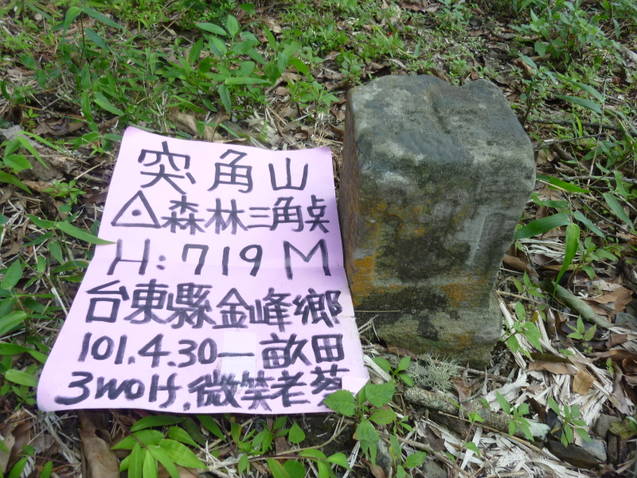 突角山
森林三角点
H:719M
台東縣金峰鄉
101.4.30 一畝田
3woH.微笑老蔡